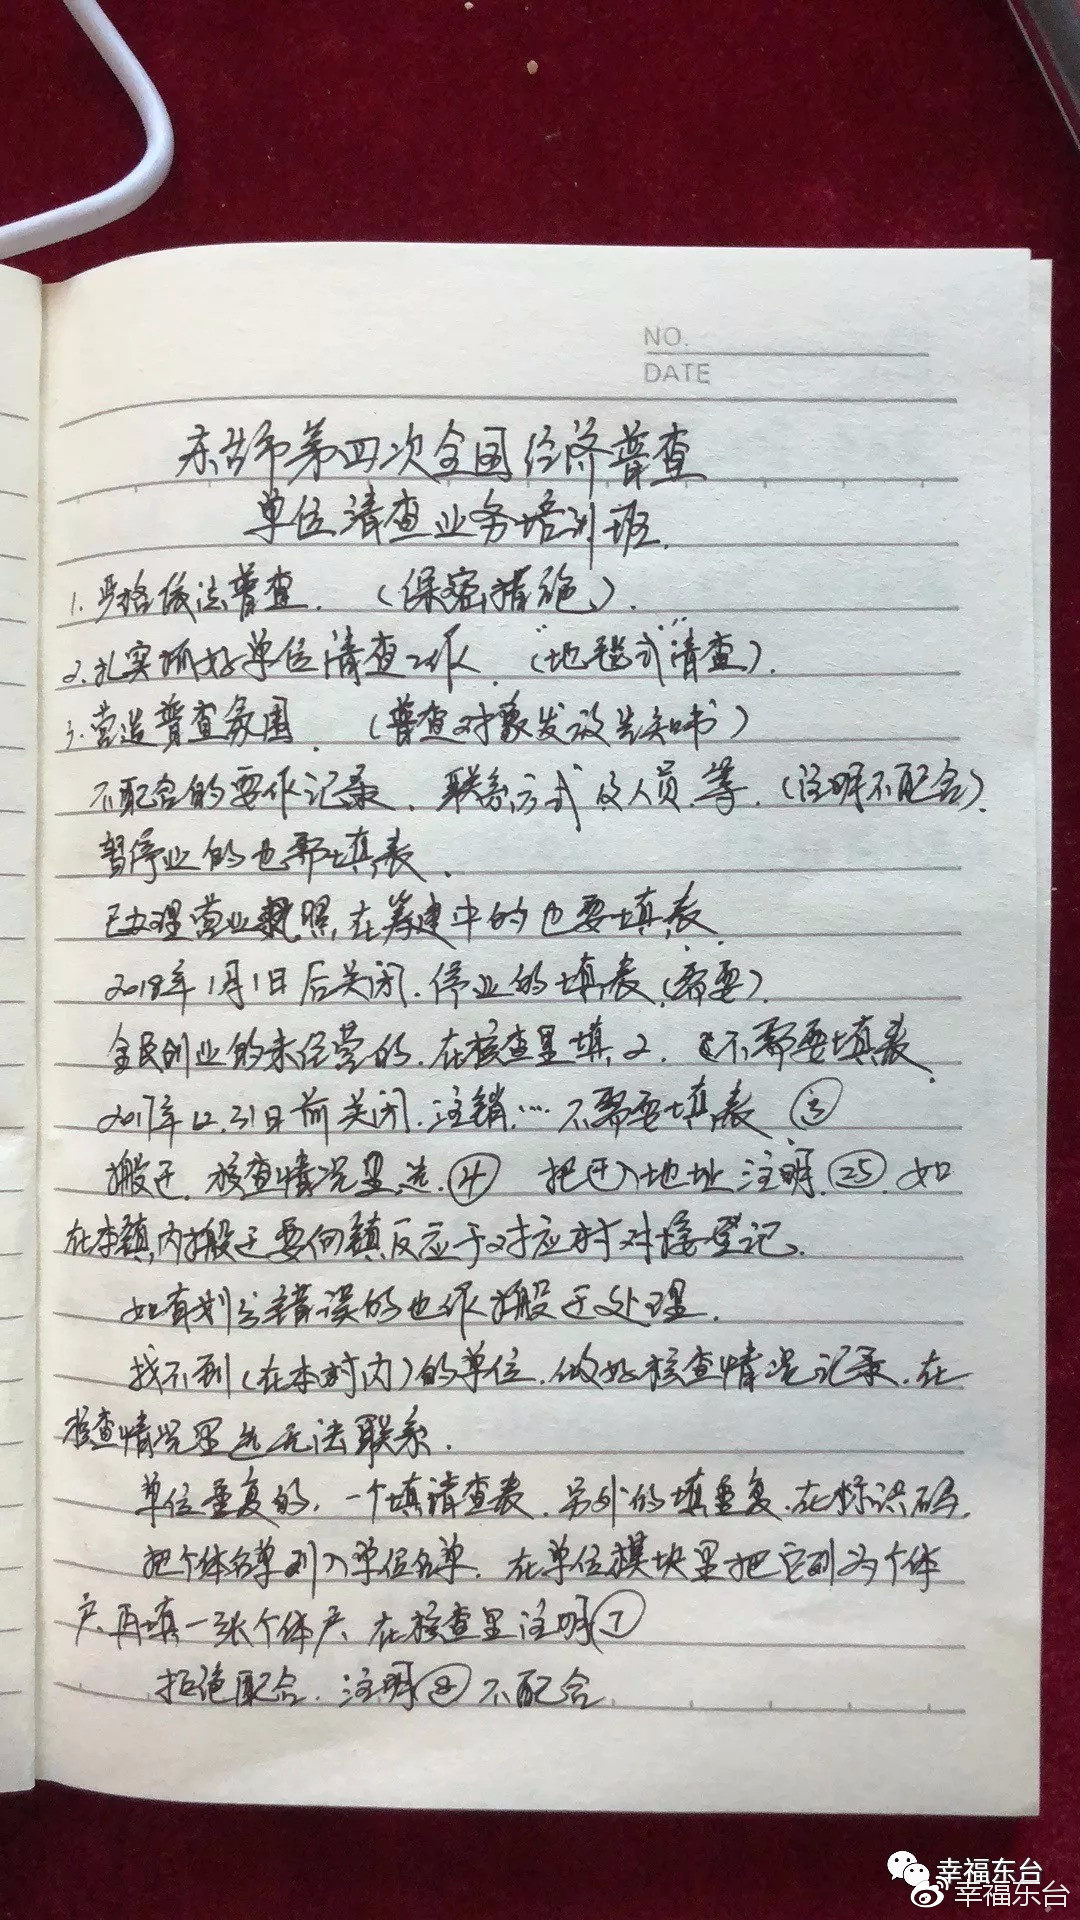 NO.
DATE
东台市第四次全国经济普查
单位清查业务培训班.
1.严格依法普查. (保密措施).
2.扎实抓好单位清查工作. ("地毯式"清查).
3.营造普查氛围. (普查对象发放告知书)
不配合的要作记录. 联系方式及人员等. (注明不配合).
暂停业的也需填表.
已办理营业执照,在筹建中的也要填表.
2018年1月1日后关闭.停业的填表.(需要).
全民创业的未经营的.在核查里填.2. 不需要填表.
2017年12.31日前关闭.注销…不需要填表 ③
搬迁.核查情况里选.④ 把迁入地址注明.㉕.如
在本镇内搬迁要向镇反应于对应村对接登记.
如有划分错误的也作搬迁处理.
找不到(在本村内)的单位.做好核查情况记录.在
核查情况里选无法联系.
单位重复的.一个填清查表.另外的填重复.在标识码.
把个体名单列入单位名单.在单位模块里把它列为个体
户.再填一张个体户.在核查里注明⑦
拒绝配合.注明⑧不配合
幸福东台
幸福东台